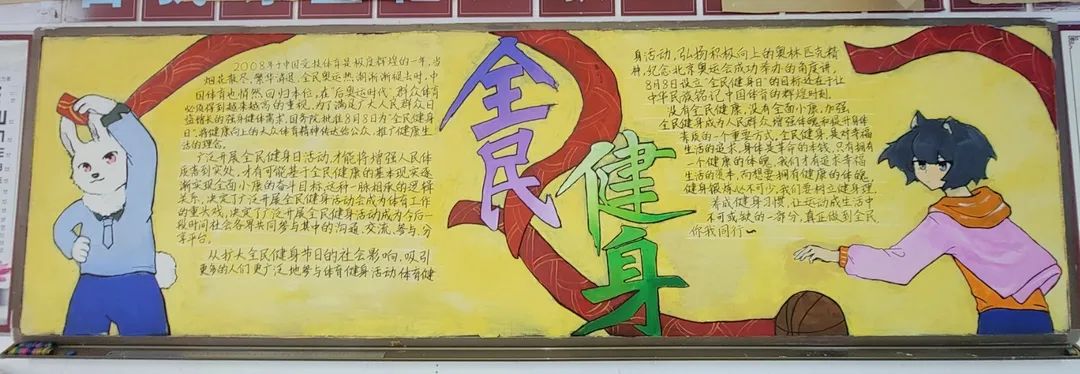 2008年中国竞技体育是极度辉煌的一年,当
烟花散尽,繁华消退,全民奥运热潮渐渐褪去时,中
国体育也悄然回归本位,在"后奥运时代"群众体育
必须得到越来越高的重视,为了满足广大人民群众日
益增长的强身健体需求,国务院批准8月8日为"全民健身
日",将健康向上的大众体育精神传达给公众,推广健康生
活的理念。
广泛开展全民健身日活动,才能将增强人民体
质落到实处,才有可能基于全民健康的基本现实逐
渐实现全面小康的奋斗目标,这种一脉相承的逻辑
关系,决定了广泛开展全民健身活动会成为体育工作
的重头戏,决定了广泛开展全民健身活动成为今后一
段时间社会各界共同参与其中的沟通、交流、参与、分
享平台。
从扩大全民健身节日的社会影响,吸引
更多的人们更广泛地参与体育健身活动 体育健
全民
健身
身活动,弘扬积极向上的奥林匹克精
神,纪念北京奥运会成功举办的角度讲,
8月8日设立"全民健身日"的目标还在于让
中华民族铭记中国体育的辉煌时刻.
没有全民健康,没有全面小康,加强
全民健身成为人民群众增强体魄和提升身体
素质的一个重要方式,全民健身,是对幸福
生活的追求,身体是革命的本钱,只有拥有
一个健康的体魄,我们才有追求幸福
生活的资本,而想要拥有健康的体魄
健身锻炼必不可少,我们要树立健身理
养成健身习惯,让运动成生活中
不可或缺的一部分,真正做到全民
你我同行~